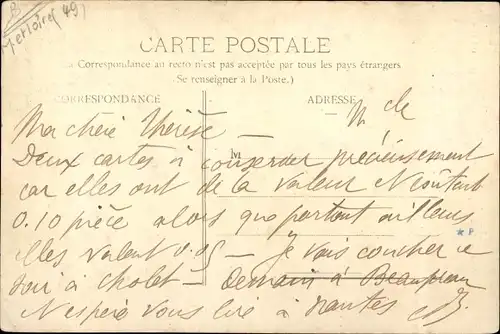 B
M et Loire (49)
CARTE POSTALE
La Correspondance au recto n'est pas acceptée par tous les pays étrangers
(Se renseigner à la Poste.)
CORRESPONDANCE
ADRESSE
M
Ma chère Thérèse —
Deux cartes à conserver précieusement
car elles ont de la valeur et coûtent
0.10 pièce alors que partout ailleurs
elles valent 0.05 — Je vais coucher ce
soir à Cholet — demain à Beaupreau
N espère vous lire à Nantes